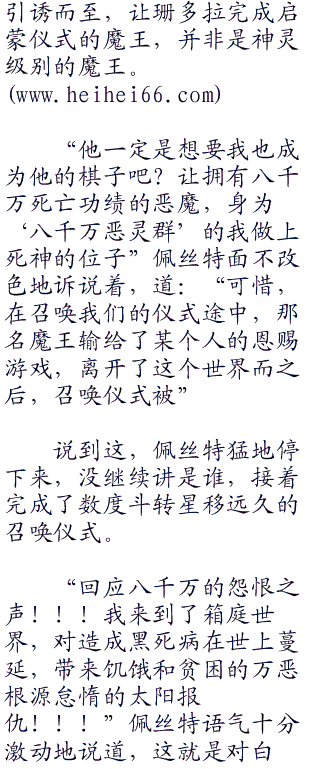 引诱而至，让珊多拉完成启
蒙仪式的魔王，并非是神灵
级别的魔王。
(www.heihei66.com)
“他一定是想要我也成
为他的棋子吧？让拥有八千
万死亡功绩的恶魔，身为
‘八千万恶灵群’的我做上
死神的位子”佩丝特面不改
色地诉说着，道：“可惜，
在召唤我们的仪式途中，那
名魔王输给了某个人的恩赐
游戏，离开了这个世界而之
后，召唤仪式被”
说到这，佩丝特猛地停
下来，没继续讲是谁，接着
完成了数度斗转星移远久的
召唤仪式。
“回应八千万的怨恨之
声！！！我来到了箱庭世
界，对造成黑死病在世上蔓
延，带来饥饿和贫困的万恶
根源怠惰的太阳报
仇！！！”佩丝特语气十分
激动地说道，这就是对白